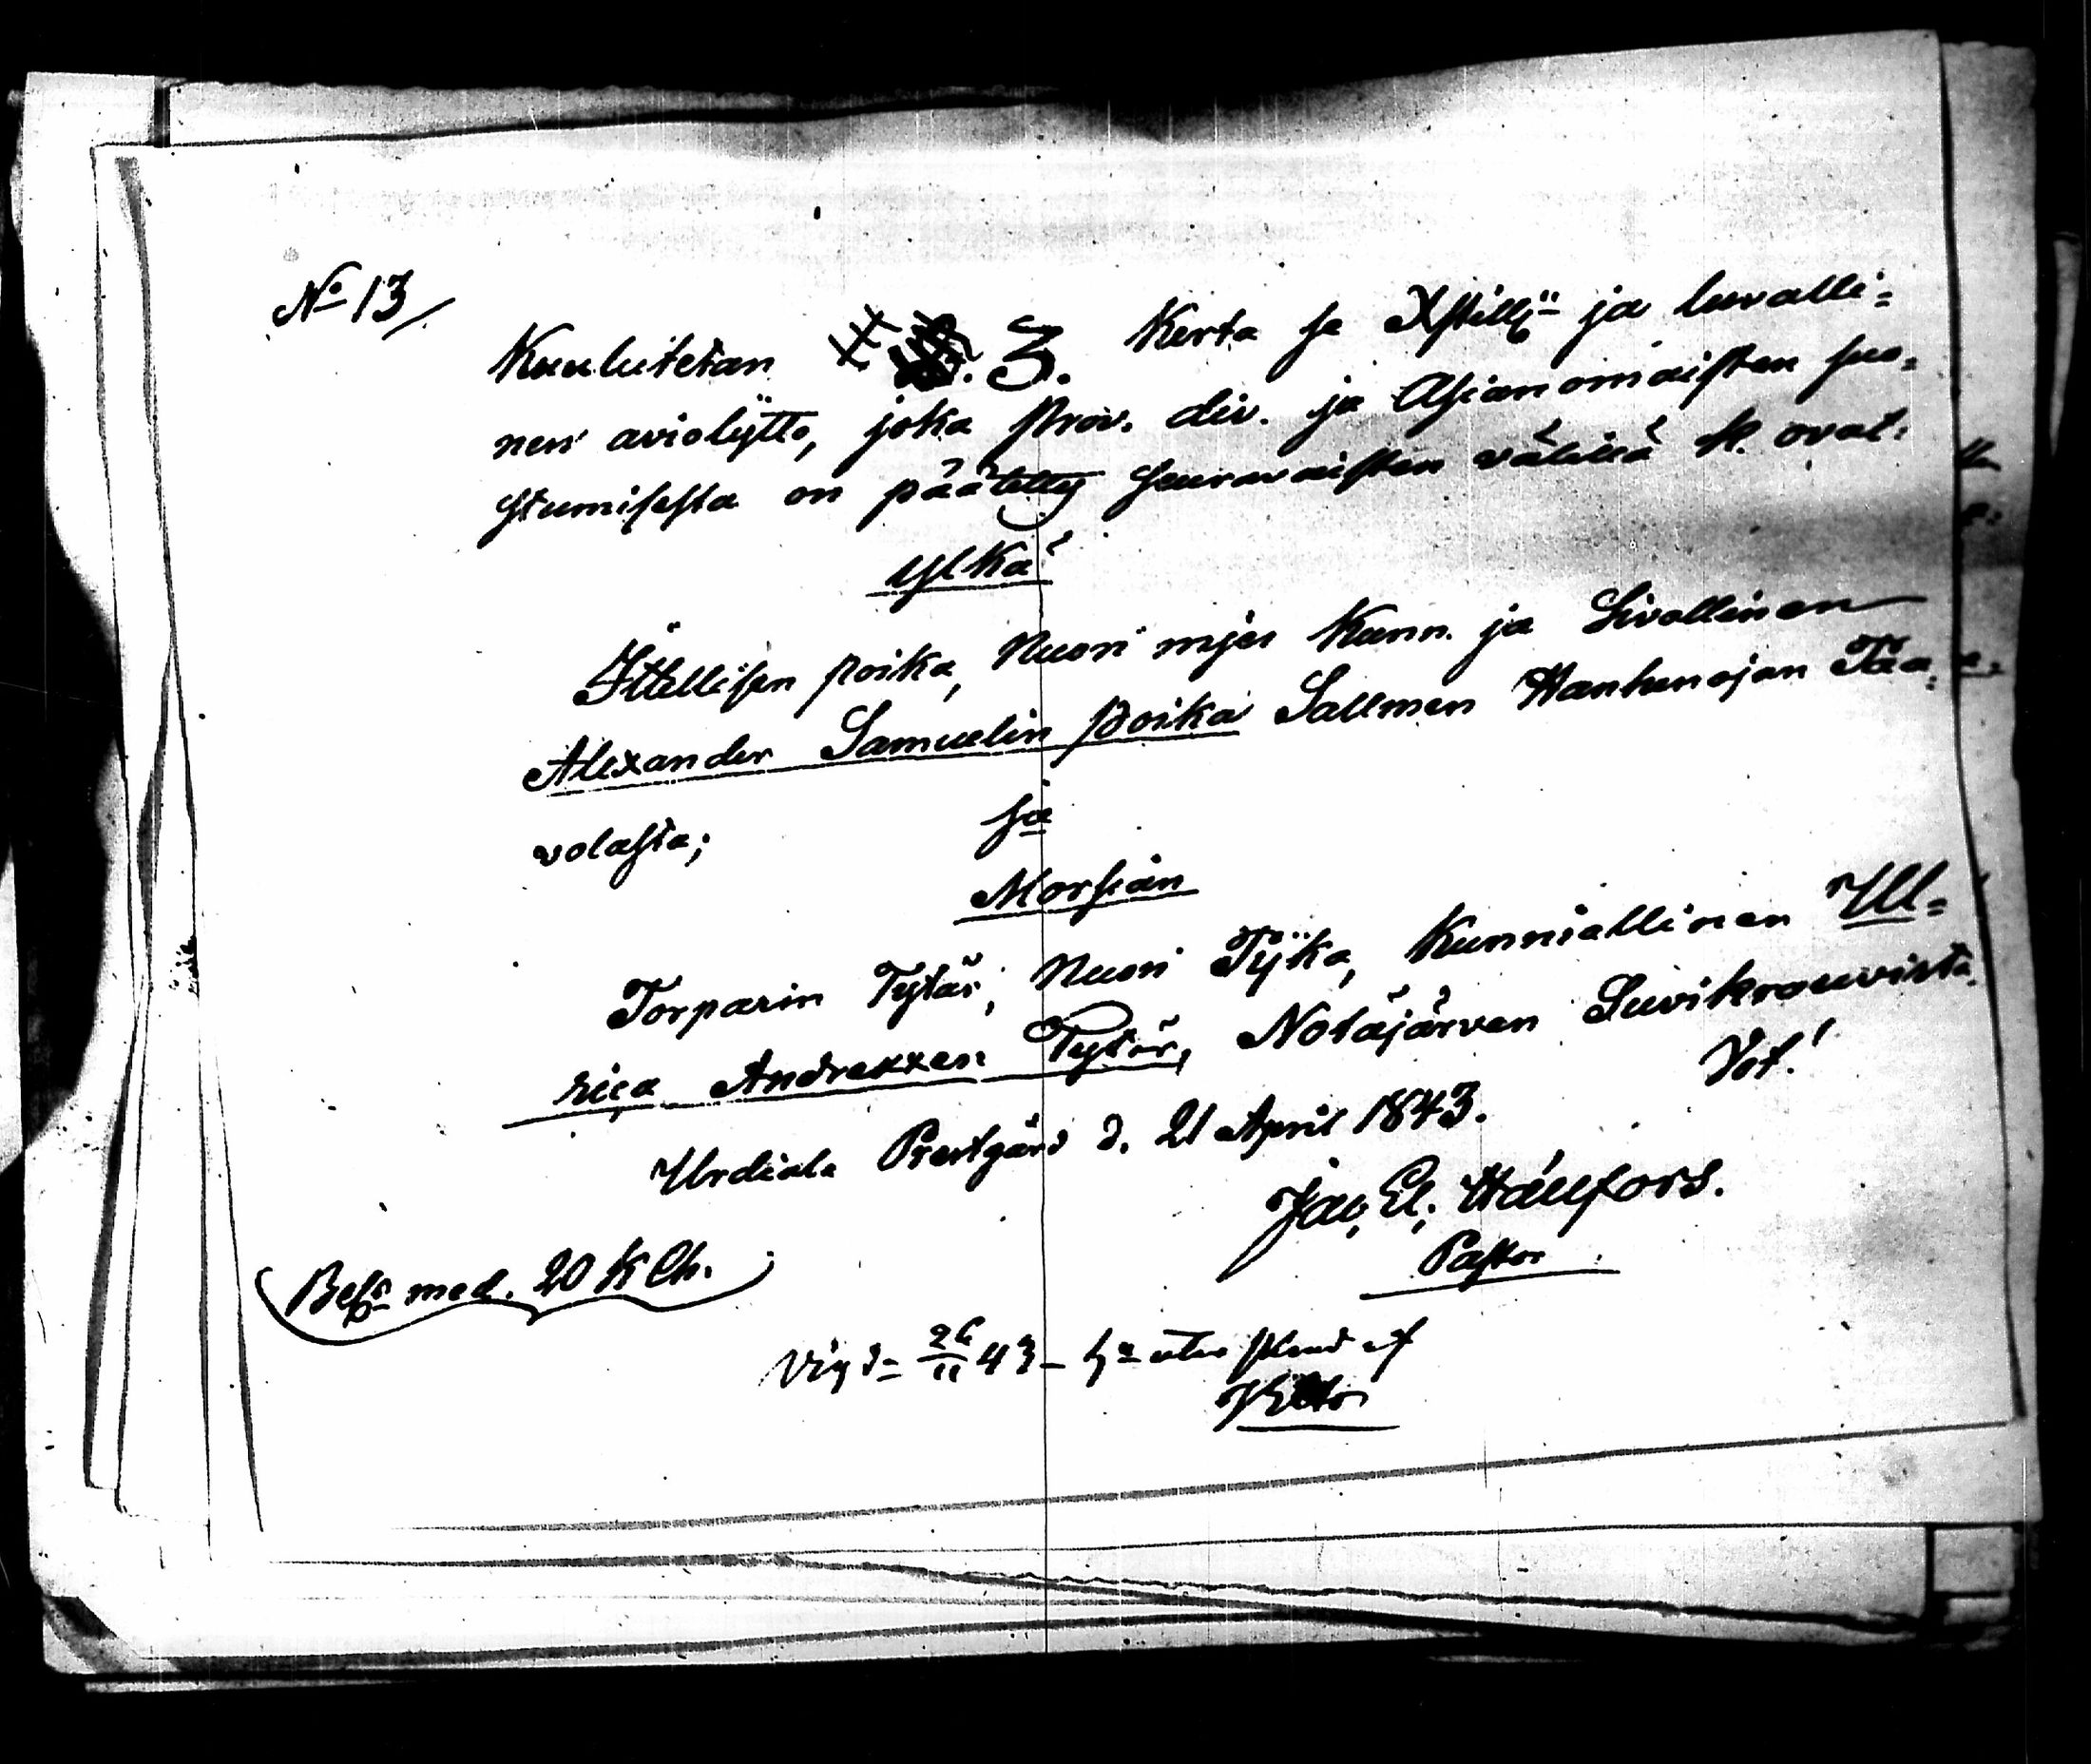 No 13/.
Kuulutetan 3. Kerta se Xstill:n ja luvalli=
nen aviolijtto, joka prov. div. ja Asianomaisten suo=
stumisesta on päätetty seuravaisten välillä N. ovat:
Ylkä
Ittellisen poika, Nuori mjes Kunn. ja Sivallinen
Alexander Samuelin poika Sallmen Hanhenojan Taa=
volasta;
ja
Morsian
Torparin Tytär, Nuori Pijka, Kunniallinen Ul=
rica Andrexxen Tytär, Notäjärven Suvikrouvista.
Vot!
Urdiala Prestgård d. 21 April 1843.
Jac. El. Hällfors.
Pastor
Bets med. 20 K
Vigd 26/11 43